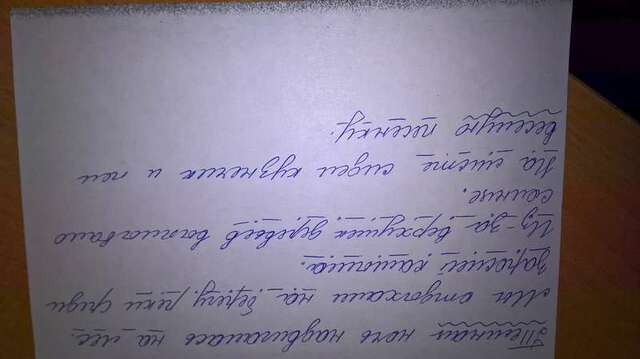 Темная ночь надвигалась на лес.
Мы отдыхали на берегу реки среди
зарослей камыша.
Из-за верхушек деревьев выплывало
солнце.
На листе сидел кузнечик и пел
веселую песенку.